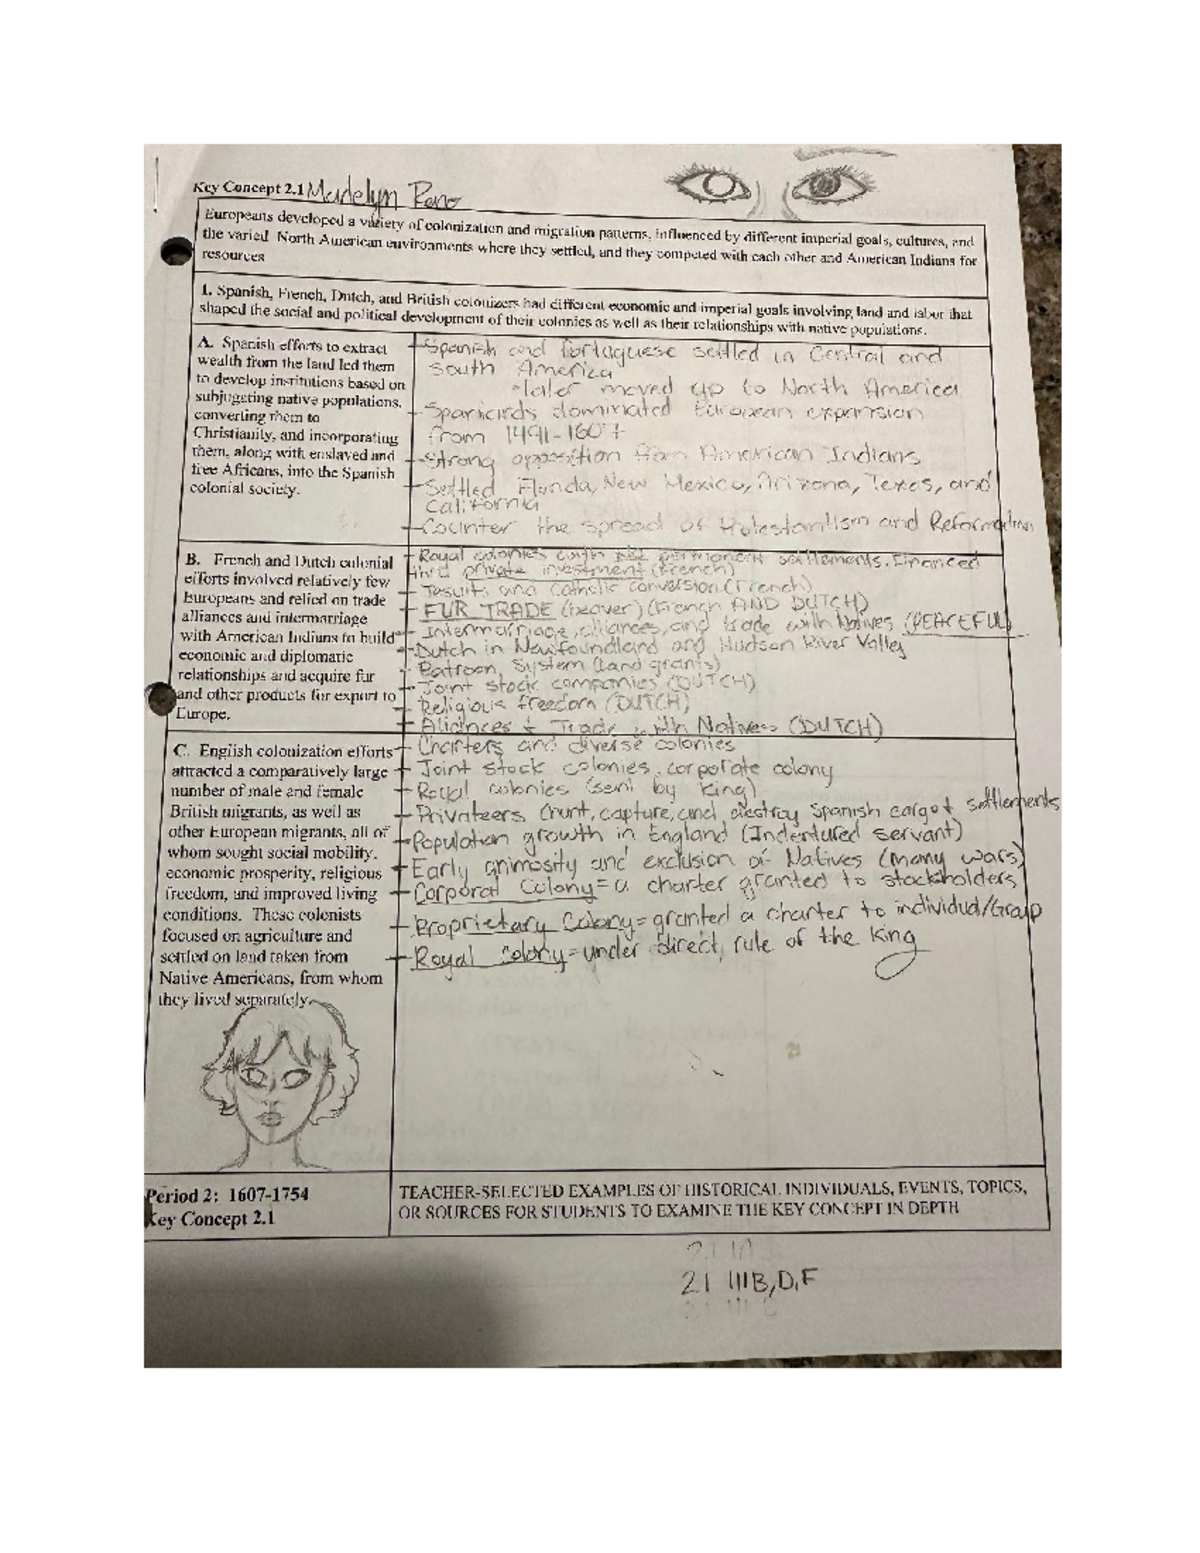 Key Concept 2.1 Madelyn Reno
Europeans developed a variety of colonization and migration patterns, influenced by different imperial goals, cultures, and
the varied North American environments where they settled, and they competed with each other and American Indians for
resources
I. Spanish, French, Dutch, and British colonizers had different economic and imperial goals involving land and labor that
shaped the social and political development of their colonies as well as their relationships with native populations.
A. Spanish efforts to extract
wealth from the land led them
to develop institutions based on
subjugating native populations,
converting them to
Christianity, and incorporating
them, along with enslaved and
free Africans, into the Spanish
colonial society.
Spanish and Portuguese settled in Central and
South America
later moved up to North America
Spaniards dominated European expansion
from 1491-1607
Strong opposition from American Indians
Settled Florida, New Mexico, Arizona, Texas, and
California
Counter the spread of Protestantism and Reformation
B. French and Dutch colonial
efforts involved relatively few
Europeans and relied on trade
alliances and intermarriage
with American Indians to build
economic and diplomatic
relationships and acquire fur
and other products for export to
Europe.
Royal colonies with permanent settlements. Financed
thru private investment (French)
Jesuits and Catholic conversion (French)
FUR TRADE (beaver) (French AND DUTCH)
Intermarriage, alliances, and trade with Natives (PEACEFUL)
Dutch in Newfoundland and Hudson River Valley
Patroon System (land grants)
Joint stock companies (DUTCH)
Religious freedom (DUTCH)
Aliances + Trade with Natives (DUTCH)
C. English colonization efforts
attracted a comparatively large
number of male and female
British migrants, as well as
other European migrants, all of
whom sought social mobility,
economic prosperity, religious
freedom, and improved living
conditions. These colonists
focused on agriculture and
settled on land taken from
Native Americans, from whom
they lived separately.
Charters and diverse colonies
Joint stock colonies, corporate colony
Royal colonies (sent by king)
Privateers (hunt, capture, and destroy Spanish cargo + settlements
Population growth in England (Indentured servant)
Early animosity and exclusion of Natives (many wars)
Corporat Colony = a charter granted to stockholders
Proprietary Colony = granted a charter to individual/Group
Royal colony = under direct, rule of the King
Period 2: 1607-1754
Key Concept 2.1
TEACHER-SELECTED EXAMPLES OF HISTORICAL INDIVIDUALS, EVENTS, TOPICS,
OR SOURCES FOR STUDENTS TO EXAMINE THE KEY CONCEPT IN DEPTH
21 IIIB,D,F